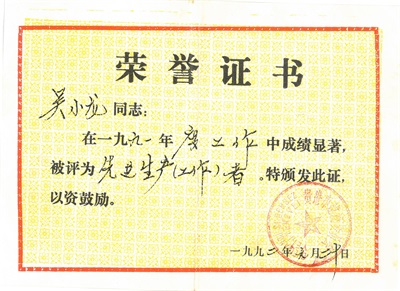 荣誉证书
吴小龙同志：
在一九九一年度工作中成绩显著，
被评为先进生产（工作）者。特颁发此证，
以资鼓励。
一九九二年 月二十日